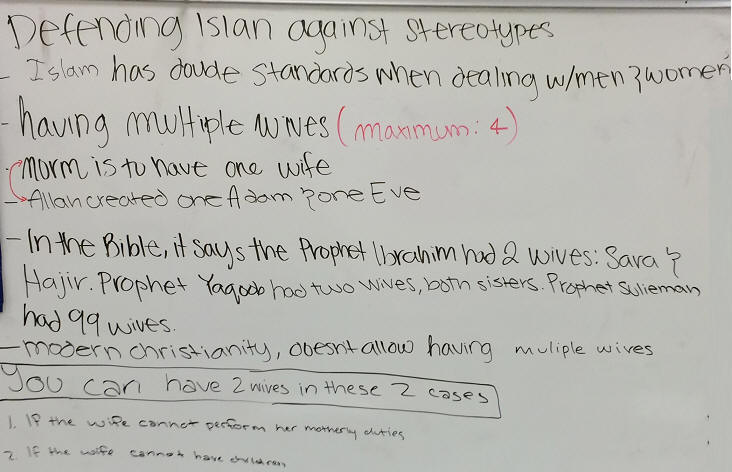 Defending Islan against stereotypes
- Islam has double standards when dealing w/men & women
- having multiple wives (maximum: 4)
- norm is to have one wife
- Allah created one Adam & one Eve
- In the Bible, it says the Prophet Ibrahim had 2 wives: Sara &
Hajir. Prophet Yaqoob had two wives, both sisters. Prophet Sulieman
had 99 wives.
- modern christianity, doesnt allow having muliple wives
You can have 2 wives in these 2 cases
1. If the wife cannot perform her motherly duties
2. If the wife cannot have children